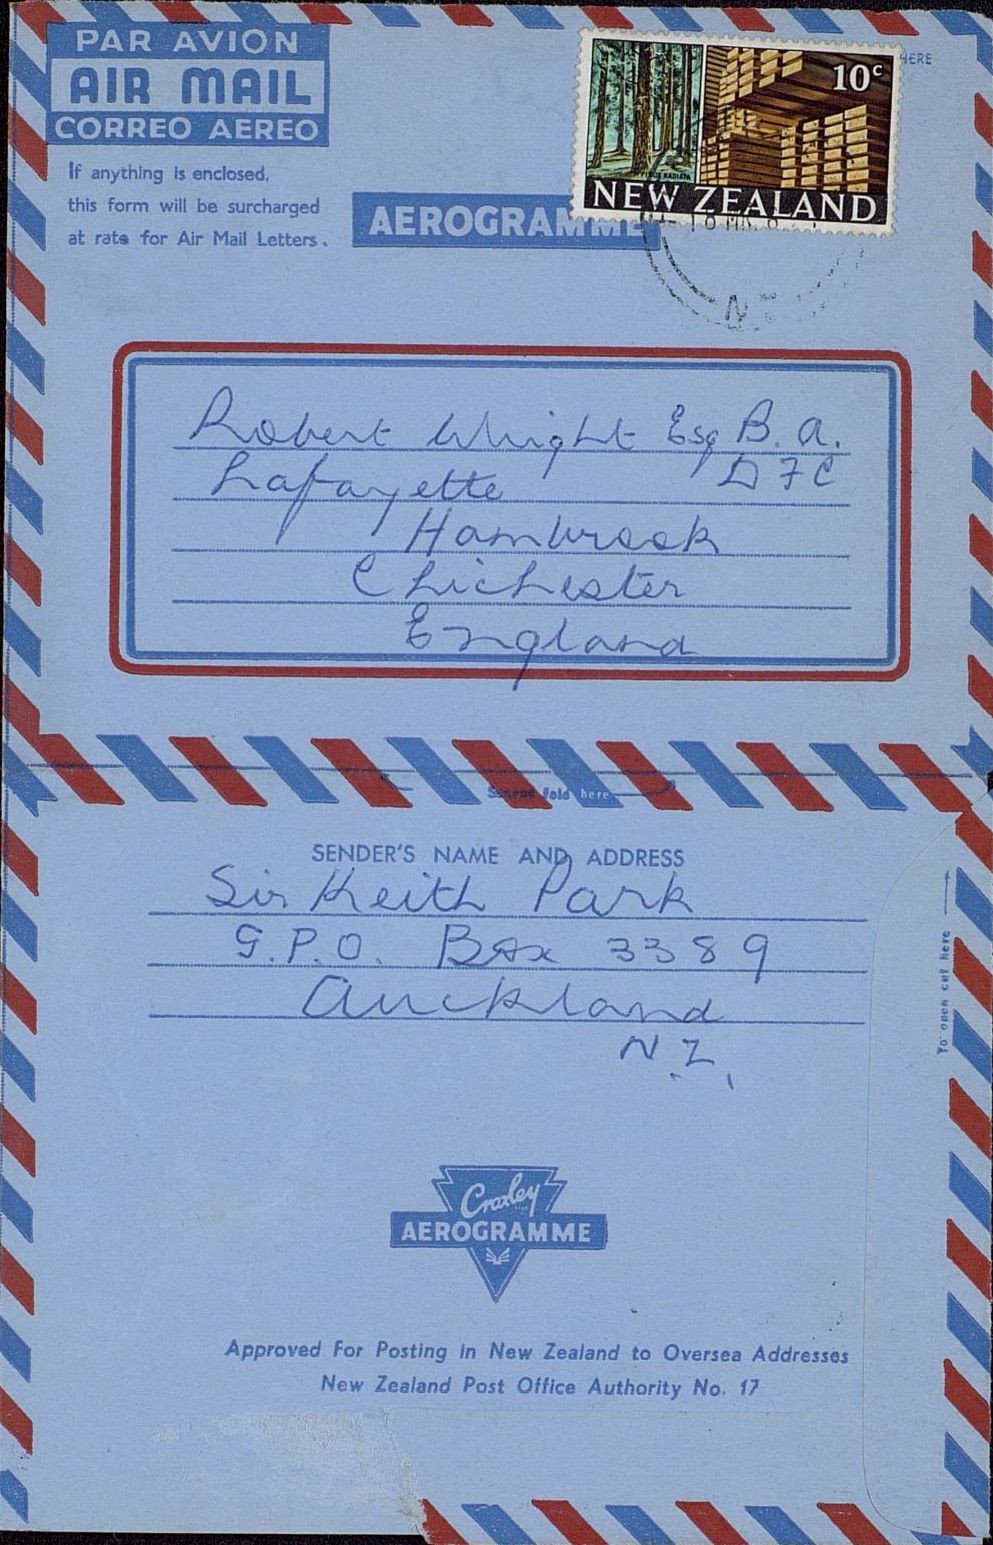 PAR AVION
AIR MAIL
CORREO AEREO
If anything is enclosed,
this form will be surcharged
at rate for Air Mail Letters.
AEROGRAMME
HERE
10c
PINUS RADIATA
NEW ZEALAND
Robert Wright Esq B.A.
DFC
Lafayette
Hambrook
Chichester
England
Second fold here
SENDER'S NAME AND ADDRESS
Sir Keith Park
G.P.O. Box 3389
Auckland
N.Z.
To open cut here
Croxley
AEROGRAMME
Approved For Posting in New Zealand to Oversea Addresses
New Zealand Post Office Authority No. 17